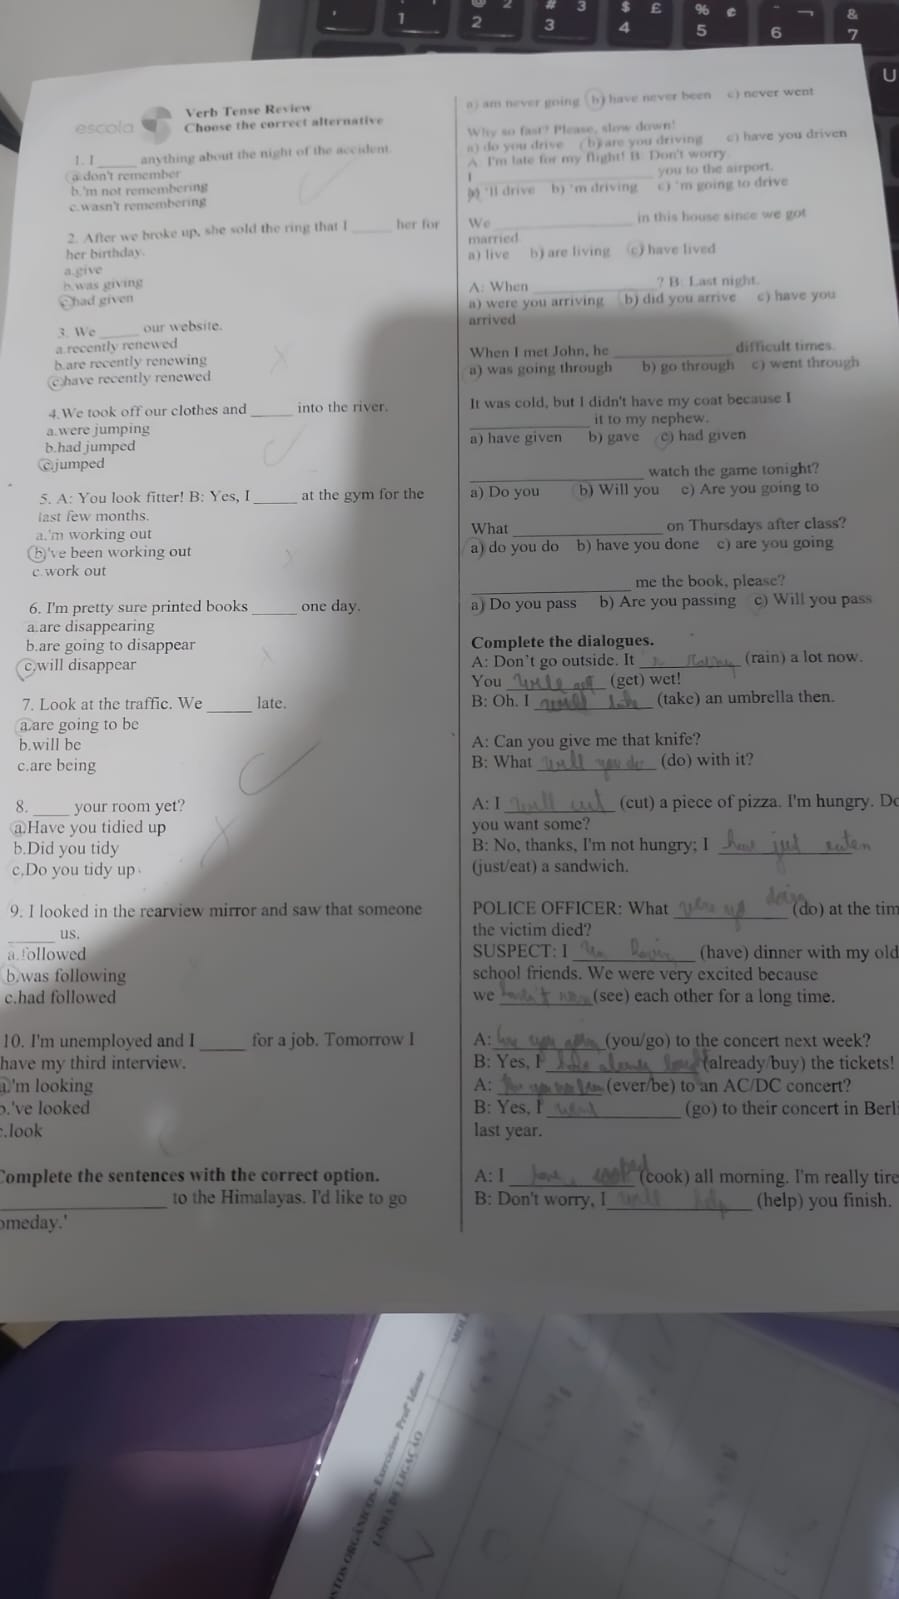 1
2
2
#
3
3
$
4
£
%
5
¢
6
&
7
U
escola
Verb Tense Review
Choose the correct alternative
1. I _____ anything about the night of the accident.
a.don't remember
b.'m not remembering
c.wasn't remembering
2. After we broke up, she sold the ring that I _____ her for
her birthday.
a.give
b.was giving
c.had given
3. We _____ our website.
a.recently renewed
b.are recently renewing
c.have recently renewed
4.We took off our clothes and _____ into the river.
a.were jumping
b.had jumped
c.jumped
5. A: You look fitter! B: Yes, I _____ at the gym for the
last few months.
a.'m working out
b.'ve been working out
c.work out
6. I'm pretty sure printed books _____ one day.
a.are disappearing
b.are going to disappear
c.will disappear
7. Look at the traffic. We _____ late.
a.are going to be
b.will be
c.are being
8. ____ your room yet?
a.Have you tidied up
b.Did you tidy
c.Do you tidy up
9. I looked in the rearview mirror and saw that someone
_____ us.
a.followed
b.was following
c.had followed
10. I'm unemployed and I _____ for a job. Tomorrow I
have my third interview.
a.'m looking
b.'ve looked
c.look
Complete the sentences with the correct option.
__________________ to the Himalayas. I'd like to go
omeday.'
a) am never going b) have never been c) never went
Why so fast? Please, slow down!
a) do you drive b) are you driving c) have you driven
A: I'm late for my flight! B: Don't worry.
I ____________________ you to the airport.
a) 'll drive b) 'm driving c) 'm going to drive
We _______________ in this house since we got
married.
a) live b) are living c) have lived
A: When _____________? B: Last night.
a) were you arriving b) did you arrive c) have you
arrived
When I met John, he _____________ difficult times.
a) was going through b) go through c) went through
It was cold, but I didn't have my coat because I
_____________ it to my nephew.
a) have given b) gave c) had given
___________________ watch the game tonight?
a) Do you b) Will you c) Are you going to
What ________________ on Thursdays after class?
a) do you do b) have you done c) are you going
_________________ me the book, please?
a) Do you pass b) Are you passing c) Will you pass
Complete the dialogues.
A: Don't go outside. It (rain) a lot now.
You will get (get) wet!
B: Oh. I will take (take) an umbrella then.
A: Can you give me that knife?
B: What will you do (do) with it?
A: I will cut (cut) a piece of pizza. I'm hungry. Do
you want some?
B: No, thanks, I'm not hungry; I have just eaten
(just/eat) a sandwich.
POLICE OFFICER: What were you doing (do) at the tim
the victim died?
SUSPECT: I having (have) dinner with my old
school friends. We were very excited because
we haven't (see) each other for a long time.
A: (you/go) to the concert next week?
B: Yes, I have already (already/buy) the tickets!
A: (ever/be) to an AC/DC concert?
B: Yes, I went (go) to their concert in Berl
last year.
A: I have cooked (cook) all morning. I'm really tire
B: Don't worry, I will help (help) you finish.
STOS ORGÂNICOS- Exercícios- Profª Idiane
LINHA DE LIGAÇÃO